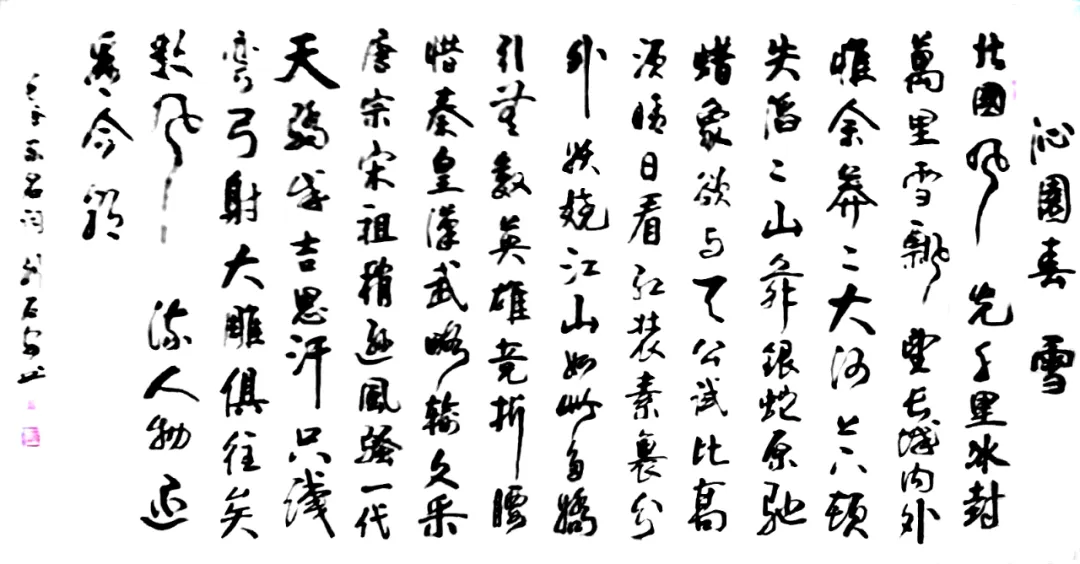 沁園春 雪
北國風光千里冰封
萬里雪飄望長城内外
惟余莽〻大河上下頓
失滔〻山舞銀蛇原馳
蜡象欲与天公試比高
須晴日看紅裝素裹分
外妖娆江山如此多嬌
引無數英雄竞折腰
惜秦皇漢武略输文采
唐宗宋祖稍遜風騷一代
天驕成吉思汗只識
彎弓射大雕俱往矣
數風流人物還
看今朝